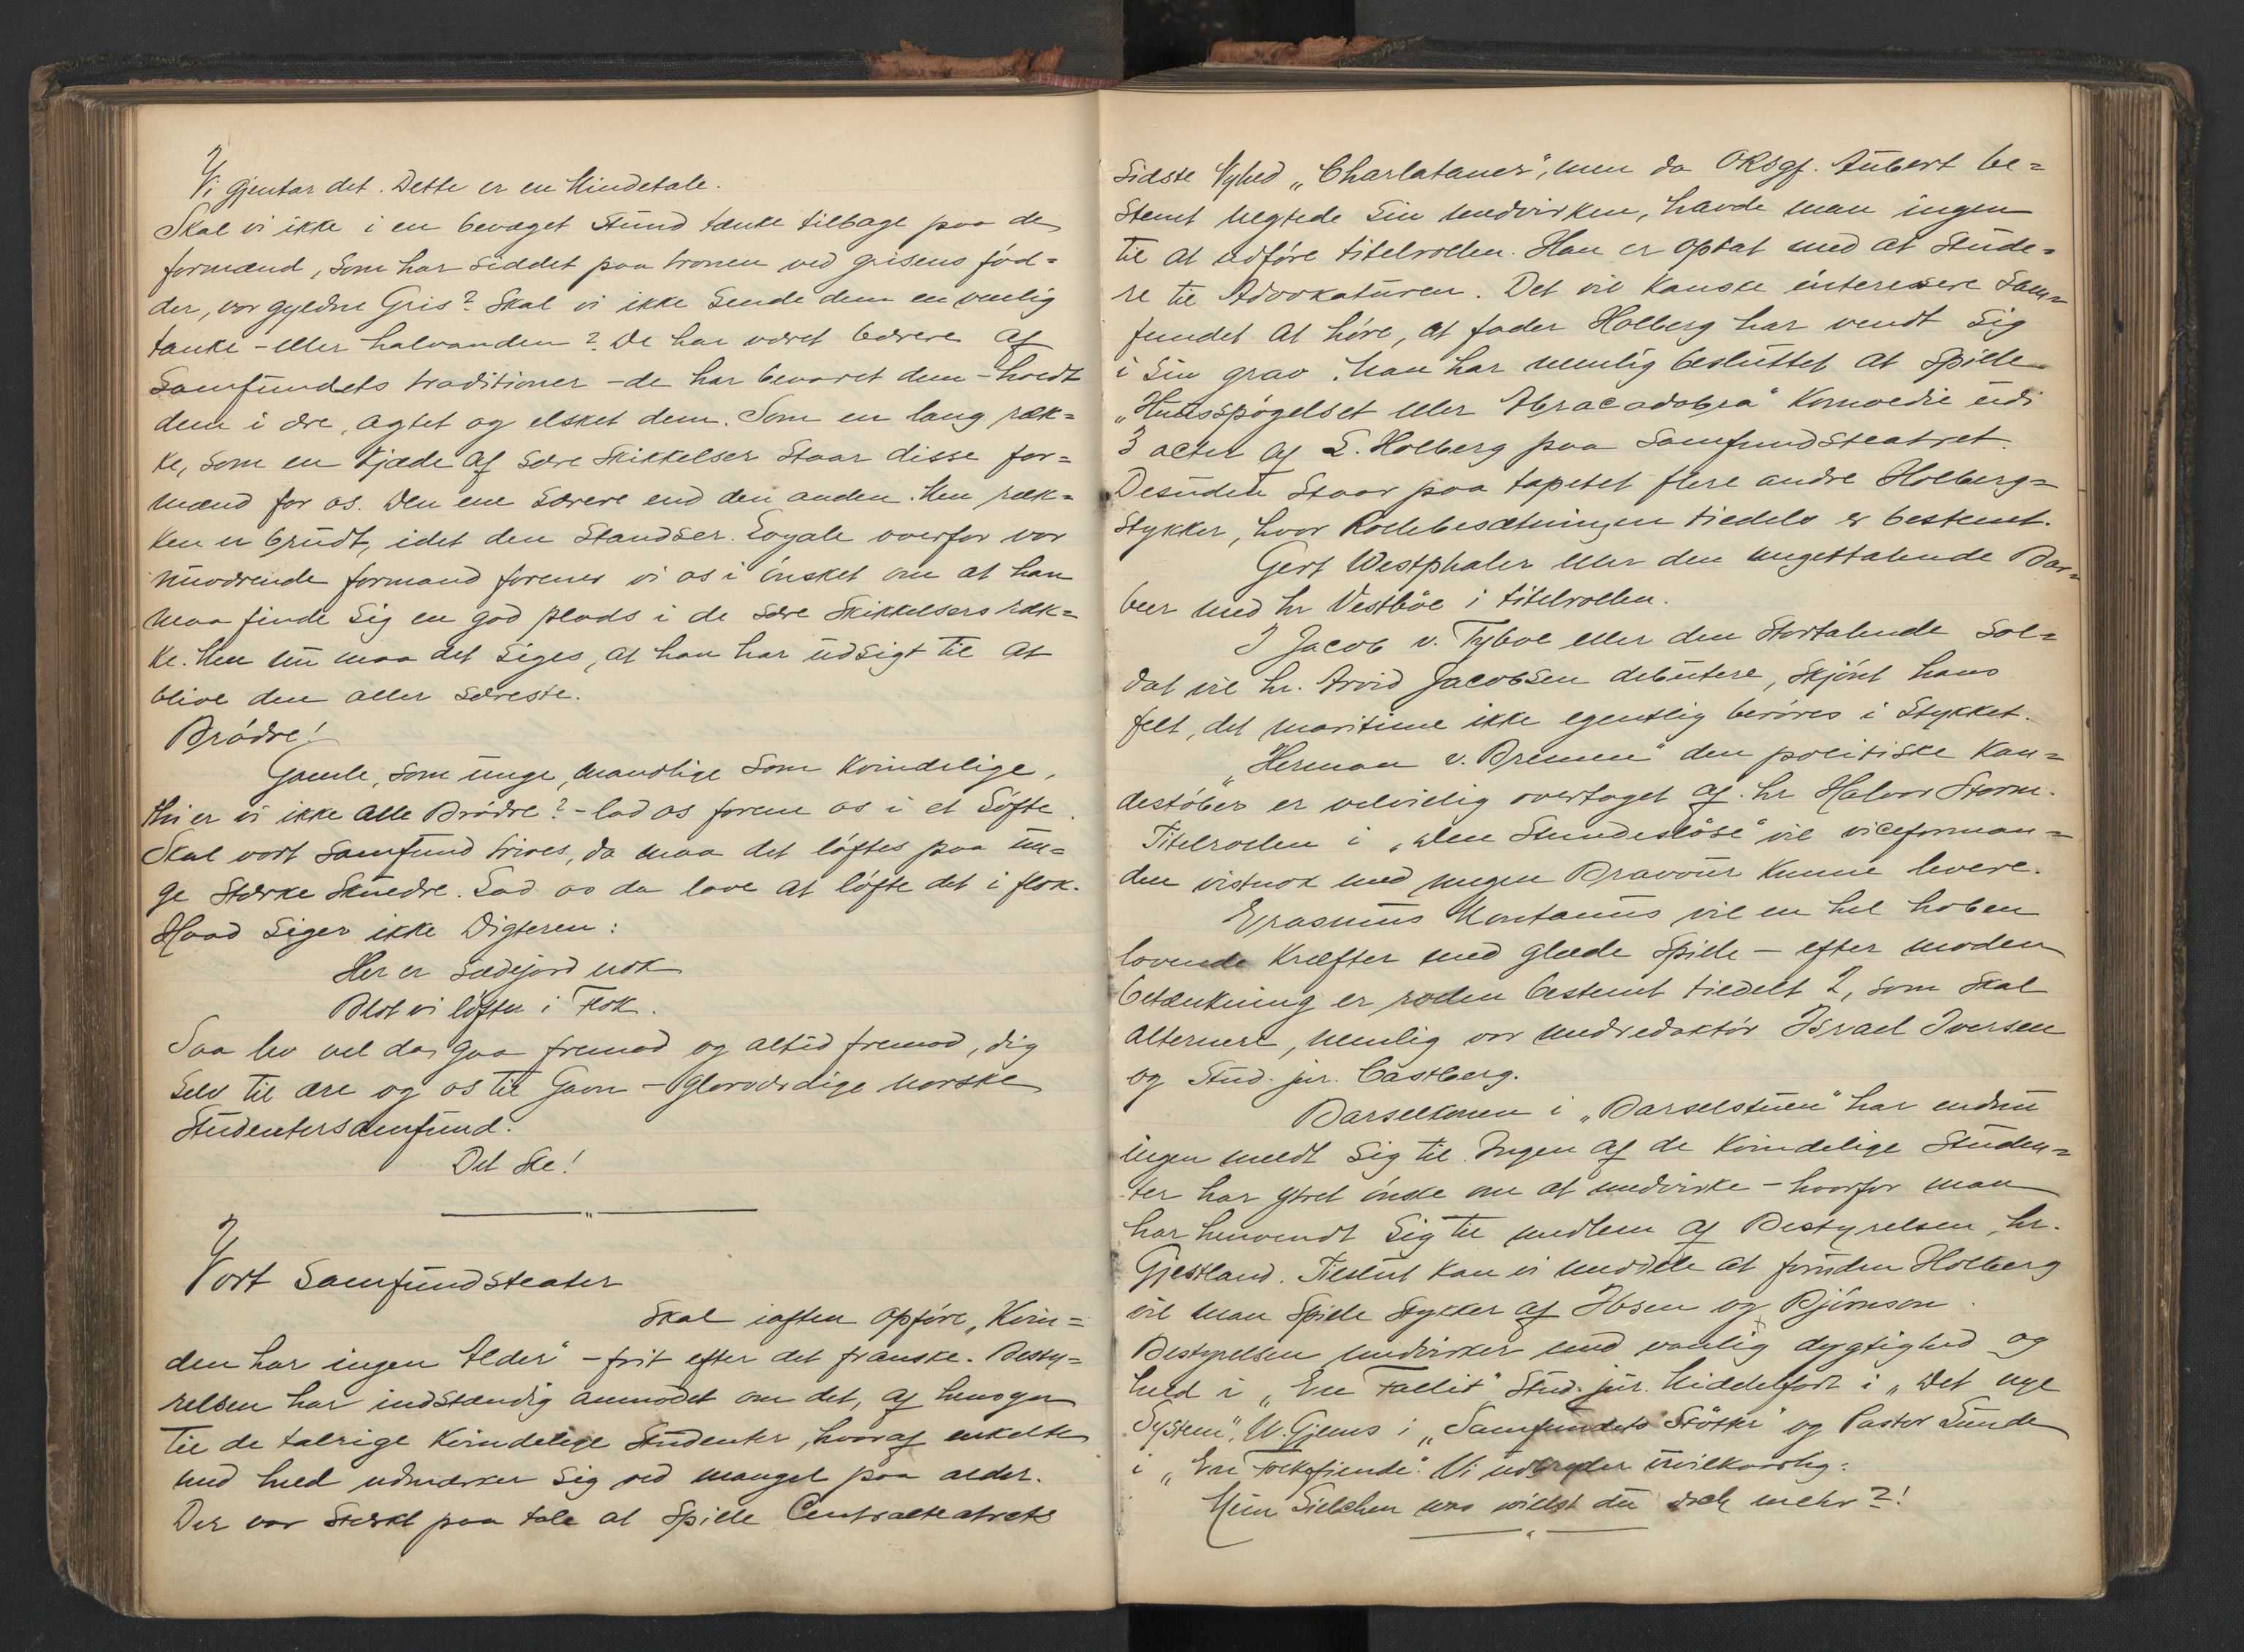 Vi gjentar det. Dette er en Mindetale.
Skal vi ikke i en bevæget Stund tænke tilbage paa de
formænd, som har siddet paa tronen ved grisens fød=
der, vor gyldne Gris? Skal vi ikke sende dem en venlig
tanke - eller halvanden? De har været bærere af
Samfundets traditioner - de har bevaret dem - holdt
dem i ære, agtet og elsket dem. Som en lang ræk=
ke, som en kjæde af sære Skikkelser staar disse for=
mænd for os. Den ene særere end den anden. Men ræk=
ken er brudt, idet den standser. Loyale overfor vor
nuværende formand forener vi os i ønsket om at han
maa finde sig en god plads i de sære Skikkelsers ræk=
ke. Men nu maa det siges, at han har udsigt til at
blive den aller særeste.
Brødre!
Gamle, som unge, mandlige som kvindelige,
thi er vi ikke alle Brødre? - lad os forene os i et Løfte.
Skal vort Samfund trives, da maa det løftes paa un=
ge stærke Skuldre. Lad os da love at løfte det i flok.
Hvad siger ikke Digteren:
Her er Sædejord nok
Blot vi løfter i Flok.
Saa lev vel da, gaa fremad og altid fremad, dig
selv til ære og os til Gavn - Glorværdige norske
Studentersamfund.
Det ske!
Vort Samfundsteater
skal iaften opføre „Kvin=
den har ingen Alder" - frit efter det franske. Besty=
relsen har indstændig anmodet om det, af hensyn
til de talrige kvindelige Studenter, hvoraf enkelte
med held udmærker sig ved mangel paa alder.
Der var stærkt paa tale at spille Centralteatrets
sidste Nyhed „Charlataner", men da ORSgf. Aubert be=
stemt negtede sin medvirken, havde man ingen
til at udføre titelrollen. Han er optat med at stude=
re til Advokaturen. Det vil kanske interessere Sam=
fundet at høre, at fader Holberg har vendt sig
i sin grav. Man har nemlig besluttet at spille
„Huusspøgelset eller Abracadabra" Komoedie udi
3 acter af L. Holberg paa Samfundsteatret.
Desuden staar paa tapetet flere andre Holberg=
stykker, hvor Rollebesætningen tildels er bestemt.
Gert Westphaler eller den megettalende Bar=
beer med hr Vestbøe i titelrollen.
I Jacob v. Tyboe eller den stortalende Sol=
dat vil hr. Arvid Jacobsen debutere, skjønt hans
felt, det maritime ikke egentlig berøres i Stykket.
„Herman v. Bremen" den politiske Kan=
destøber er velvillig overtaget af hr Halvor Storm.
Titelrollen i „Den Stundesløse" vil viceforman=
den vistnok med megen Bravour kunne levere.
Erasmus Montanus vil en hel hoben
lovende Kræfter med glæde spille - efter moden
betænkning er rollen bestemt tildelt 2, som skal
alternere, nemlig vor medredaktør Israel Iversen
og Stud. jur. Castberg.
Barselkonen i „Barselstuen" har endnu
ingen meldt sig til. Ingen af de kvindelige Studen=
ter har ytret ønske om at medvirke - hvorfor man
har henvendt sig til medlem af Bestyrelsen, hr.
Gjestland. Tilslut kan vi meddele at foruden Holberg
vil man spille stykker af Ibsen og Bjørnson.
Bestyrelsen medvirker med vanlig dygtighed og
held i „En Fallit" Stud. jur. Middelfart i „Det nye
System", W. Gjems i „Samfundets Støtter" og Pastor Sunde
i „En Folkefiende". Vi udbryder uvilkaarlig:
Mein Liebchen was willst du noch mehr?!